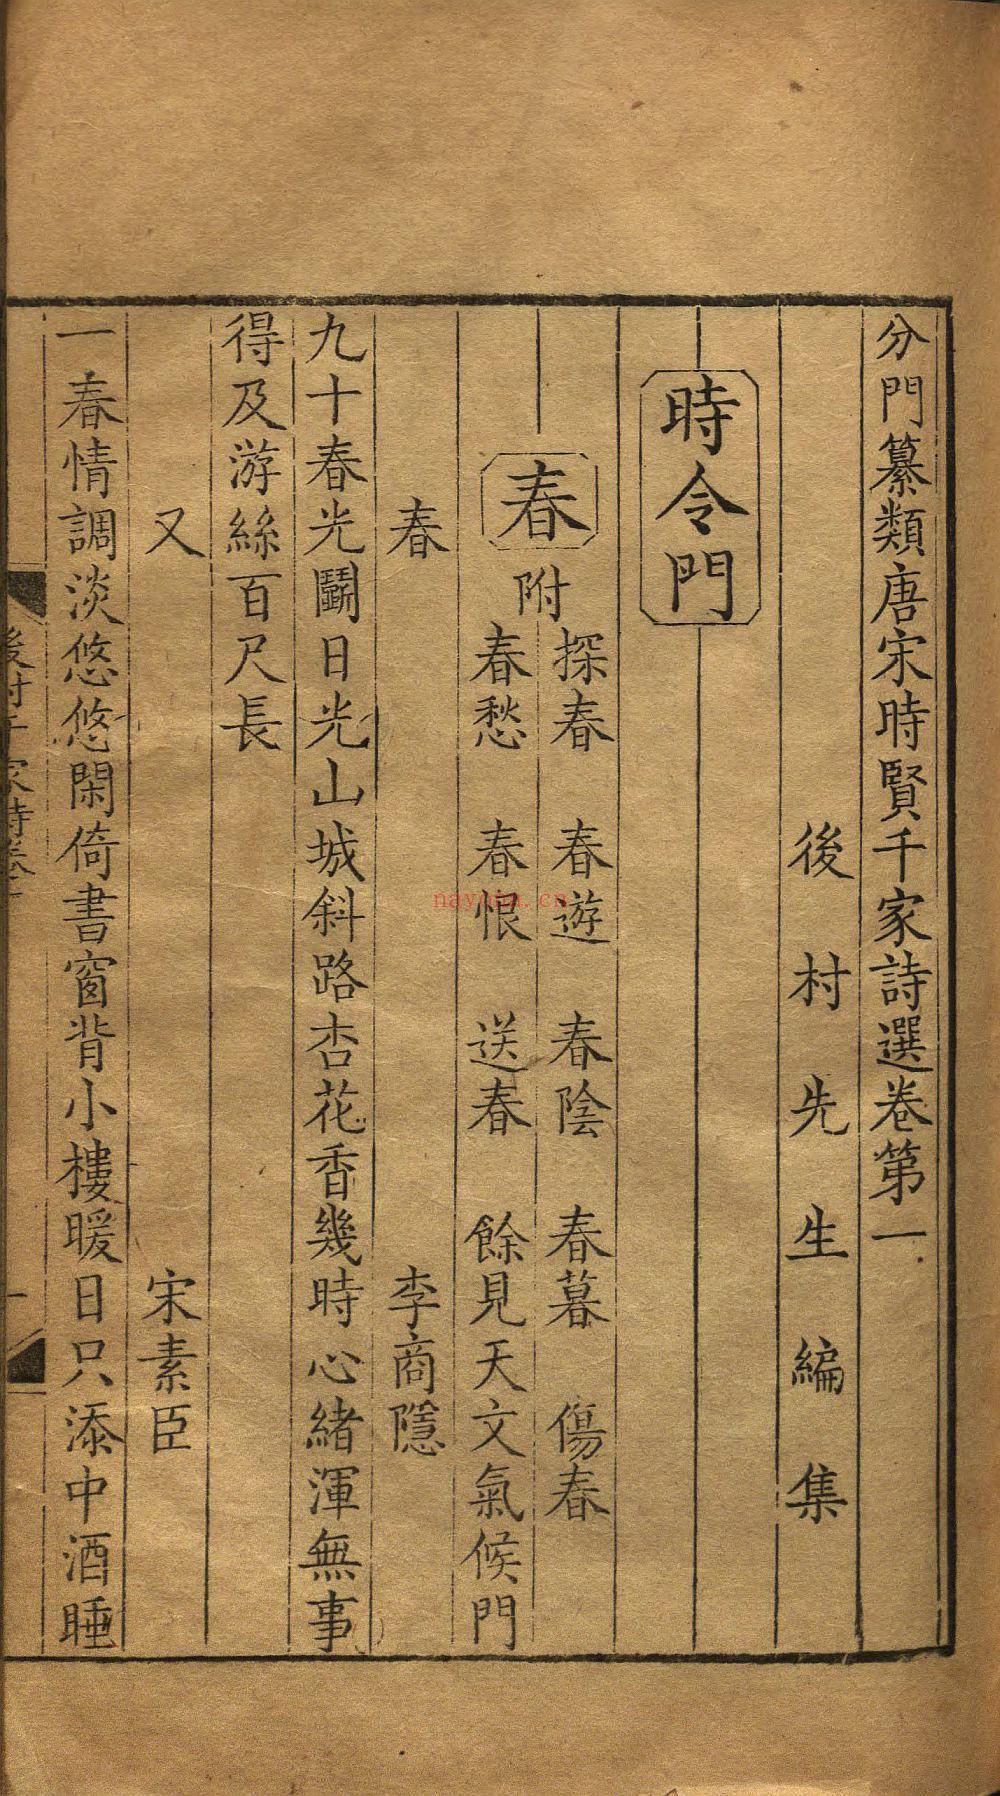 分門纂類唐宋時賢千家詩選卷第一
後村先生編集
時令門
春附
探春 春遊 春陰 春暮 傷春
春愁 春恨 送春 餘見天文氣候門
春 李商隱
九十春光鬭日光山城斜路杏花香幾時心緒渾無事
得及游絲百尺長
又 宋素臣
一春情調淡悠悠閑倚書窗背小樓暖日只添中酒睡
後村千家詩卷一
一
nayona.cn